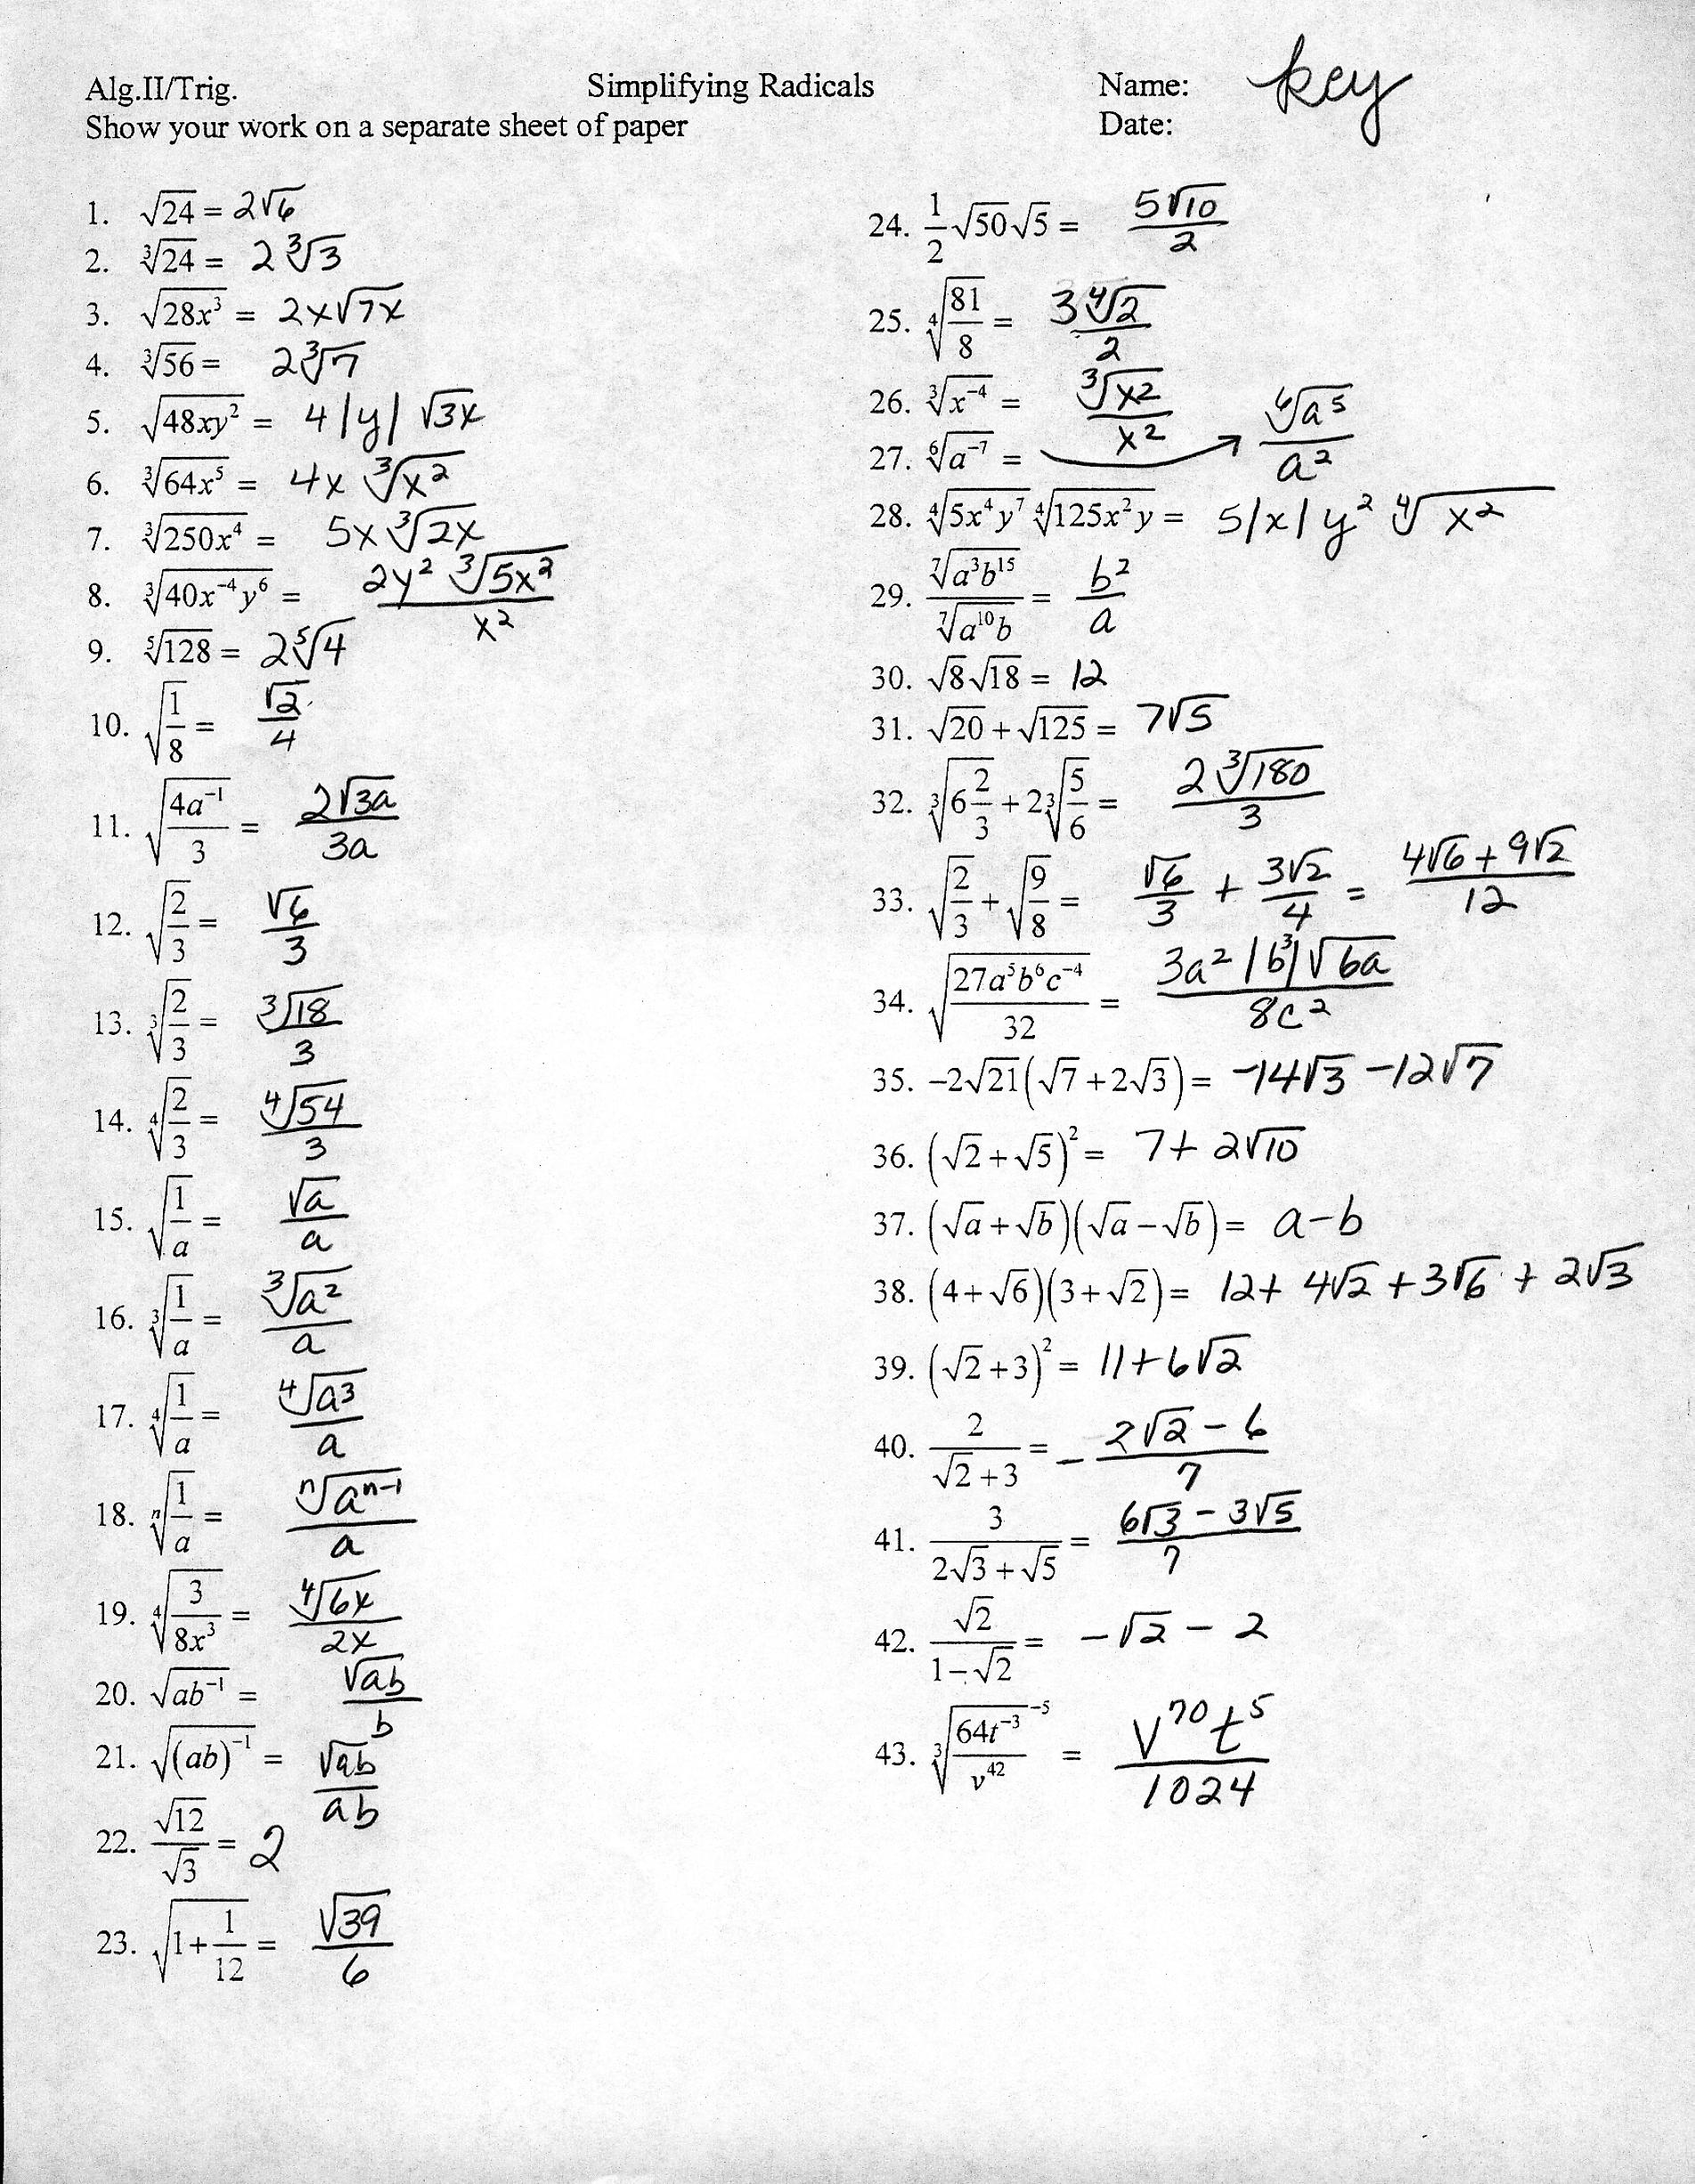 Alg.II/Trig. Simplifying Radicals Name: key
Show your work on a separate sheet of paper Date:
1. √24 = 2√6
2. ∛24 = 2∛3
3. √(28x³) = 2x√(7x)
4. ∛56 = 2∛7
5. √(48xy²) = 4|y|√(3x)
6. ∛(64x⁵) = 4x∛(x²)
7. ∛(250x⁴) = 5x∛(2x)
8. ∛(40x⁻⁴y⁶) = (2y²∛(5x²))/x²
9. ⁵√128 = 2⁵√4
10. √(1/8) = √2/4
11. √(4a⁻¹/3) = 2√(3a)/(3a)
12. √(2/3) = √6/3
13. ∛(2/3) = ∛18/3
14. ∜(2/3) = ∜54/3
15. √(1/a) = √a/a
16. ∛(1/a) = ∛(a²)/a
17. ∜(1/a) = ∜(a³)/a
18. ⁿ√(1/a) = ⁿ√(aⁿ⁻¹)/a
19. ∜(3/(8x³)) = ∜(6x)/(2x)
20. √(ab⁻¹) = √(ab)/b
21. √((ab)⁻¹) = √(ab)/(ab)
22. √12/√3 = 2
23. √(1+1/12) = √39/6
24. (1/2)√50√5 = 5√10/2
25. ∜(81/8) = 3∜2/2
26. ∛(x⁻⁴) = ∛(x²)/x²
27. ⁶√(a⁻⁷) = → ⁶√(a⁵)/a²
28. ∜(5x⁴y⁷) ∜(125x²y) = 5|x|y²∜(x²)
29. ⁷√(a³b¹⁵)/⁷√(a¹⁰b) = b²/a
30. √8√18 = 12
31. √20 + √125 = 7√5
32. ∛(6 2/3) + 2∛(5/6) = 2∛180/3
33. √(2/3) + √(9/8) = √6/3 + 3√2/4 = (4√6 + 9√2)/12
34. √(27a⁵b⁶c⁻⁴/32) = 3a²|b³|√(6a)/(8c²)
35. −2√21(√7 + 2√3) = −14√3 − 12√7
36. (√2 + √5)² = 7 + 2√10
37. (√a + √b)(√a − √b) = a − b
38. (4 + √6)(3 + √2) = 12 + 4√2 + 3√6 + 2√3
39. (√2 + 3)² = 11 + 6√2
40. 2/(√2 + 3) = − (2√2 − 6)/7
41. 3/(2√3 + √5) = (6√3 − 3√5)/7
42. √2/(1 − √2) = −√2 − 2
43. ∛(64t⁻³/v⁴²)⁻⁵ = v⁷⁰t⁵/1024